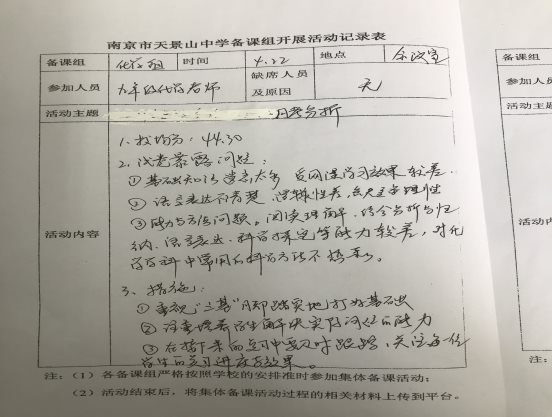 南京市天景山中学备课组开展活动记录表
备课组 化学组 时间 4.22 地点 会议室
参加人员 九年级化学老师 缺席人员及原因 无
活动主题 月考分析
活动内容
1. 校均分:44.30
2. 试卷暴露问题:
① 基础知识遗忘太多 反网课学习效果较差.
② 语言表达不清楚 逻辑性差,
③ 能力与方法问题。阅读理解、综合分析与归
纳、语言表达、科学探究等能力较差,对化
学学科中常用的科学方法不熟悉。
3、措施:
① 重视"三基",脚踏实地打好基础
② 注重培养学生解决实际问题的能力
③ 在接下来的复习中要及时跟踪,关注每位
学生的复习进度与效果。
注:(1)各备课组严格按照学校的安排准时参加集体备课活动;
(2)活动结束后,将集体备课活动过程的相关材料上传到平台。
备课组
参加人员
活动主题
活动内容
注: